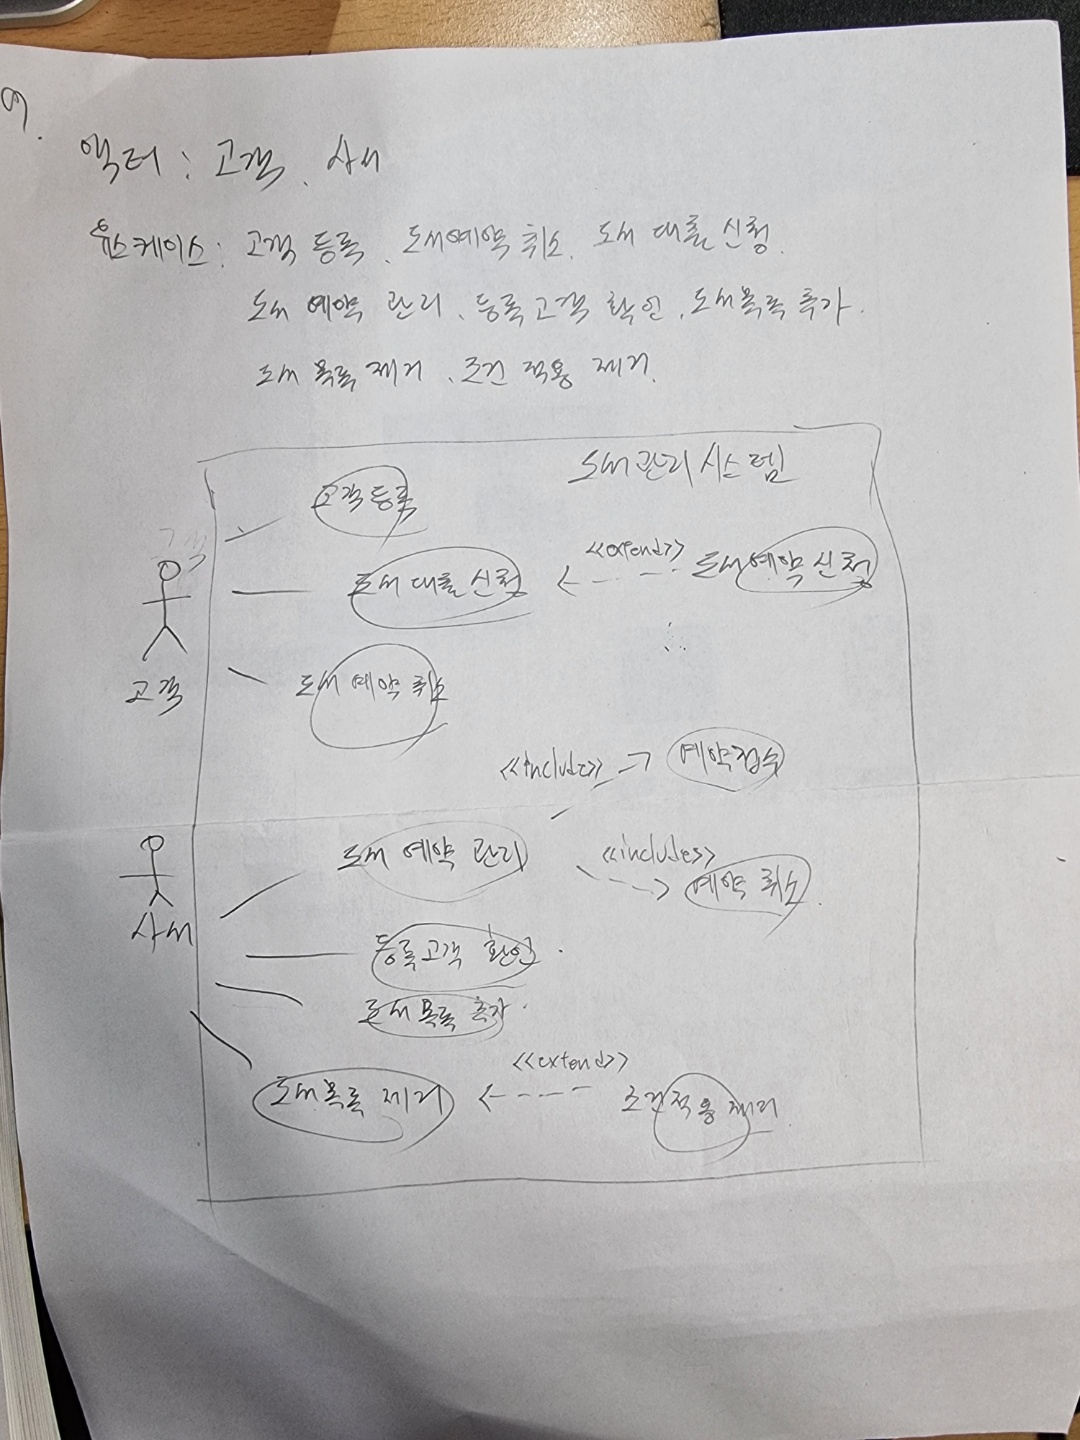 9.
액터 : 고객, 사서
유스케이스 : 고객 등록, 도서예약 취소, 도서 대출 신청,
도서 예약 관리, 등록 고객 확인, 도서목록 추가,
도서 목록 제거, 조건 적용 제거.
도서관리 시스템
고객 등록
고객
<<extend>>
도서 대출 신청
도서예약 신청
고객
도서 예약 취소
<<include>>
예약접수
도서 예약 관리
<<includes>>
예약 취소
사서
등록고객 확인
도서 목록 추가
<<extend>>
도서목록 제거
조건적용 제거